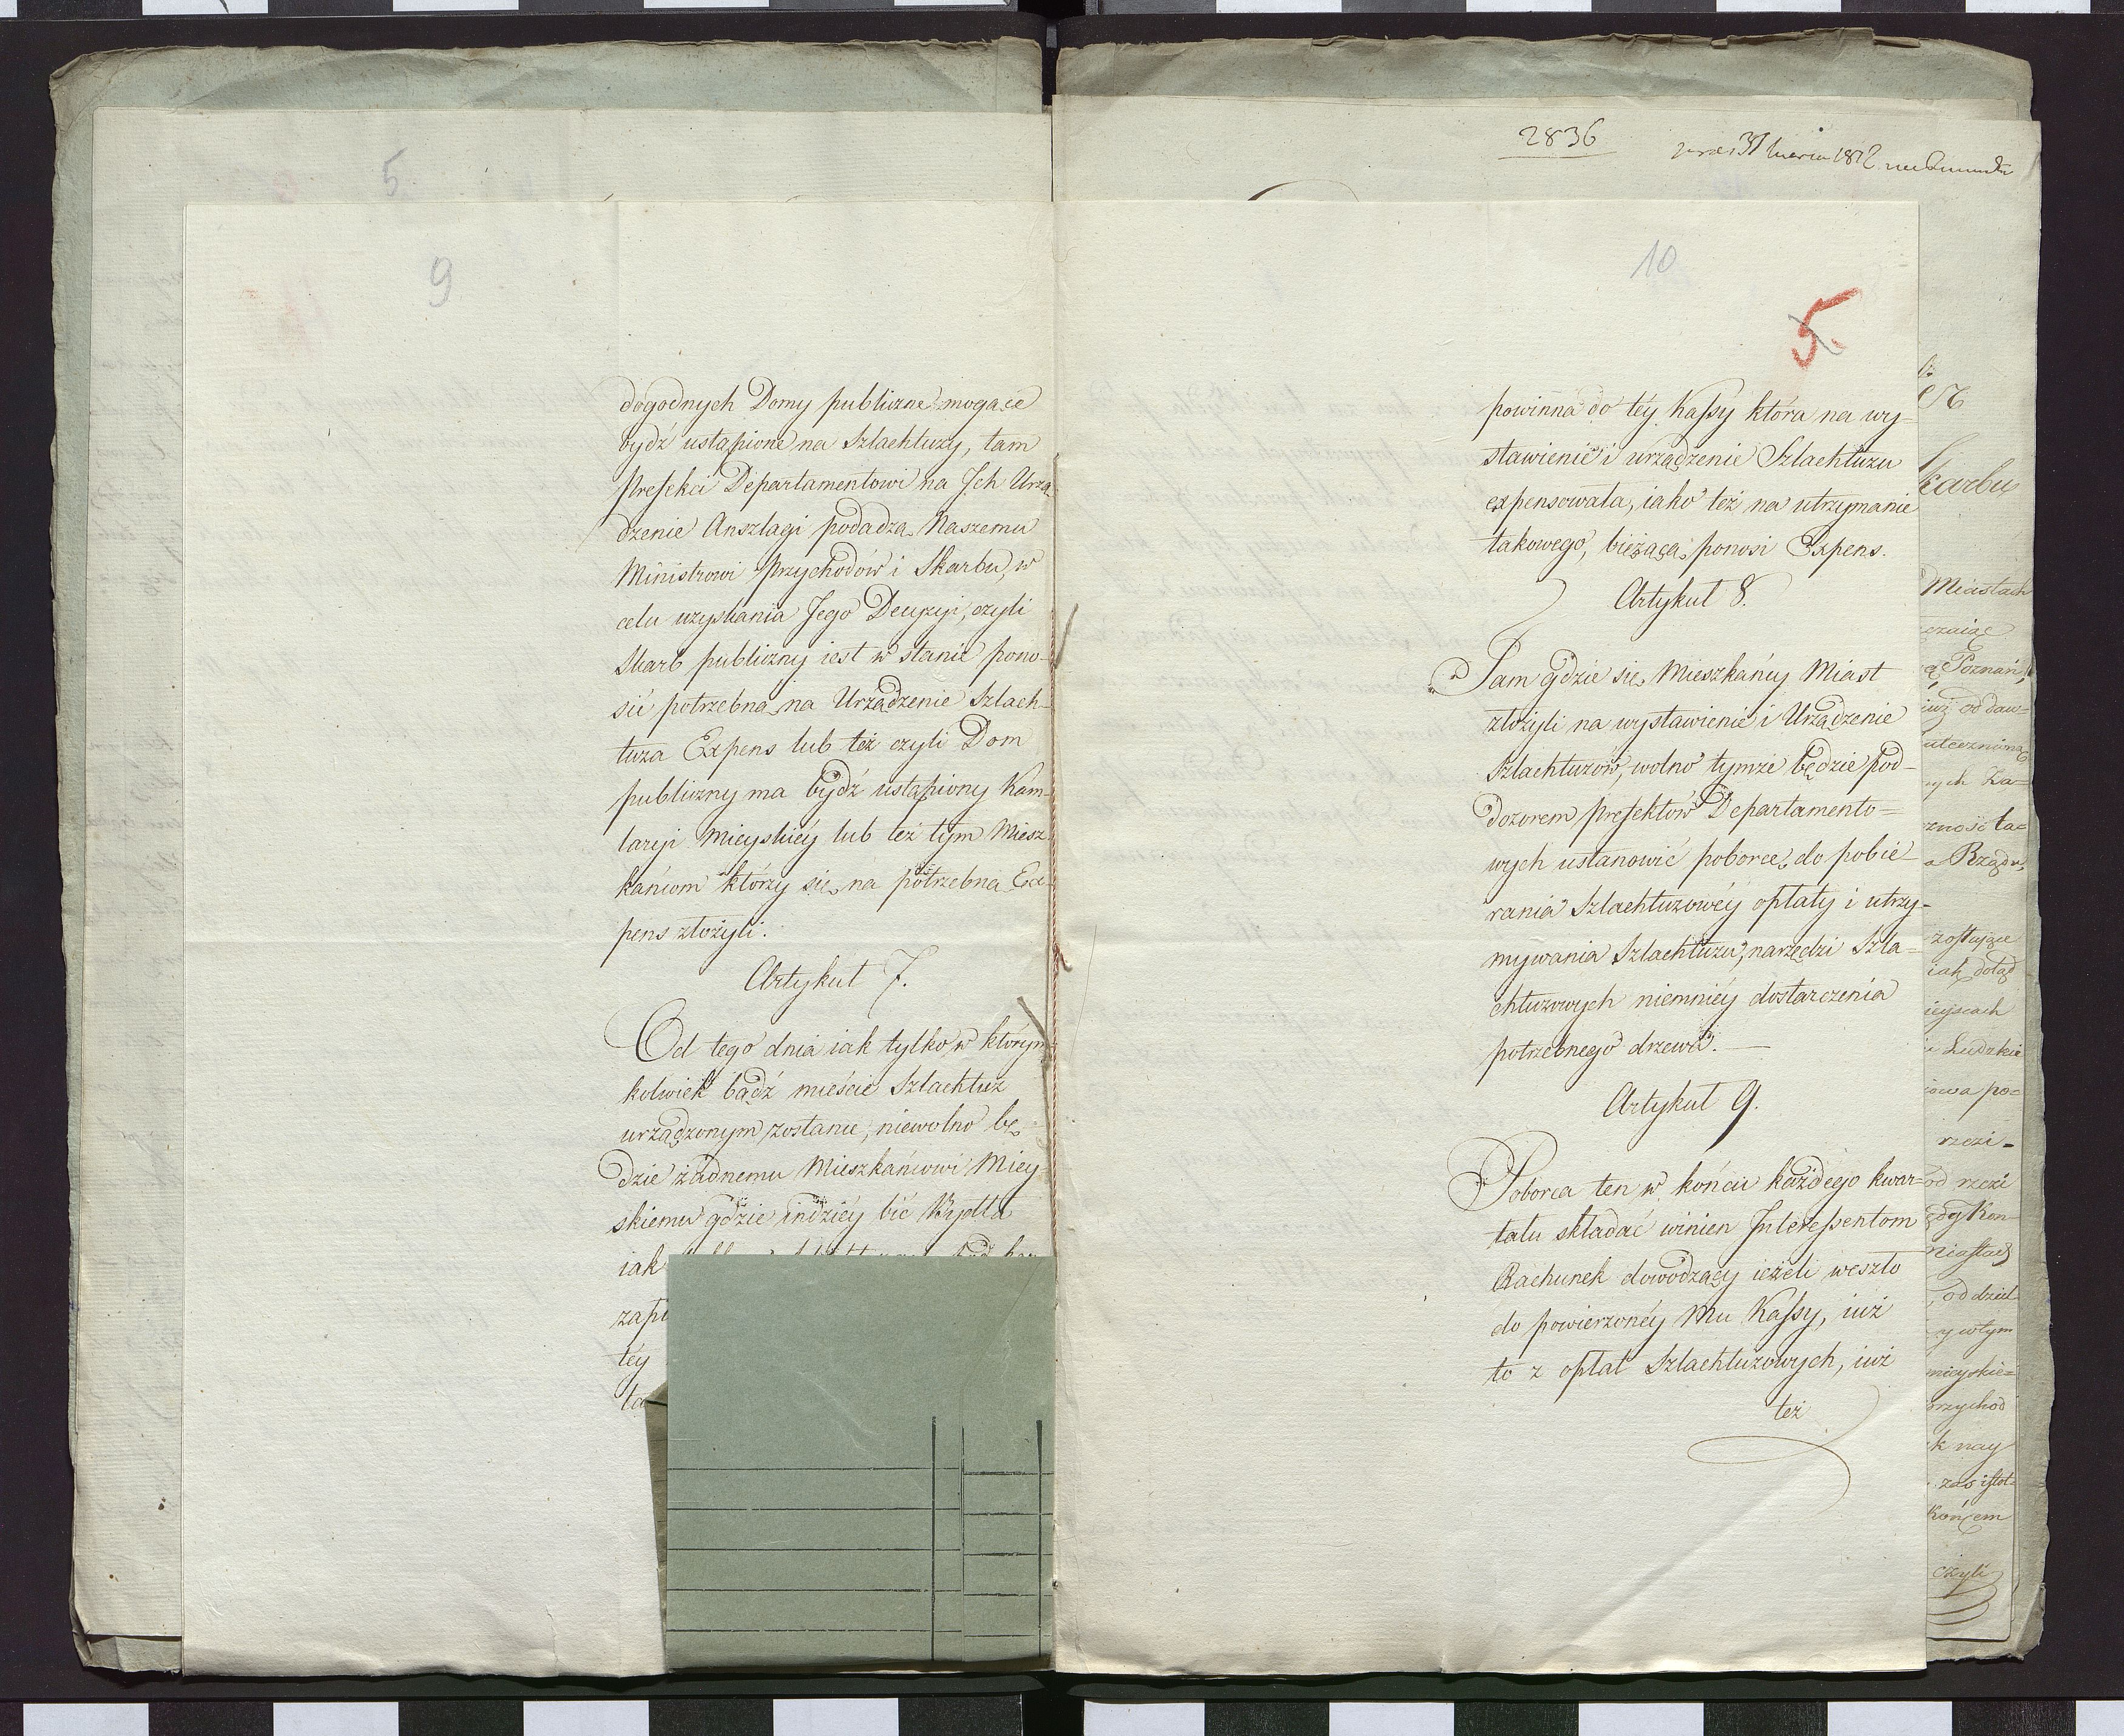 5
9
dogodnych Domy publiczne mogące
bydź ustąpione na Szlachtuzy, tam
Prefekci Departamentowi na Ich Urzą-
dzenie Anszlagi podadzą Naszemu
Ministrowi Przychodów i Skarbu, w
celu uzyskania Jego Decyzyi, czyli
Skarb publiczny iest w stanie pono-
sić potrzebną na Urządzenie Szlach-
tuza Expens lub też czyli Dom
publiczny ma bydź ustąpiony Kam-
laryi Mieyskiéy lub też tym Miesz
kańcom którzy się na potrzebną Ex-
pens złożyli.
Artykuł 7.
Od tego dnia iak tylko w którym
kolwiek bądź mieście Szlachtuz
urządzonym zostanie, niewolno bę-
dzie żadnemu Mieszkańcowi Miey-
skiemu gdzie indziéy bić Bydła
iak
zap
téy
ta
2836
31 1812
10
5.
powinna do téy Kassy która na wy-
stawienie i urządzenie Szlachtuzu
expensowała, iako też na utrzymanie
takowego, bieżącą ponosi Expens.
Artykuł 8.
Tam gdzie się Mieszkańcy Miast
złożyli na wystawienie i Urządzenie
Szlachtuzów, wolno tymże będzie pod
dozorem Prefektów Departamento=
wych ustanowić poborcę do pobie-
rania Szlachtuzowéy opłaty i utrzy-
mywania Szlachtuzu, narzędzi Szla=
chtuzowych niemniéy dostarczenia
potrzebnego drzewa. —
Artykuł 9.
Poborca ten w końcu każdego kwar=
tału składać winien Interessentom
Rachunek dowodzący ieżeli weszło
do powierzonéy Mu Kassy, iuż
to z opłat Szlachtuzowych, iuż
też
karbu
Miastach
czaiąc
Poznań,
iuż od daw=
nych Za=
zność ta=
Rządu,
zostaiące
iak dotąd
ieyscach
Ludzkie
iowa po=
rzezi-
od rzezi
gdy Kon-
miastach
, od dziel
y w tym
mieyskie=
przychód
k nay
zaś istot-
końcem
czyli